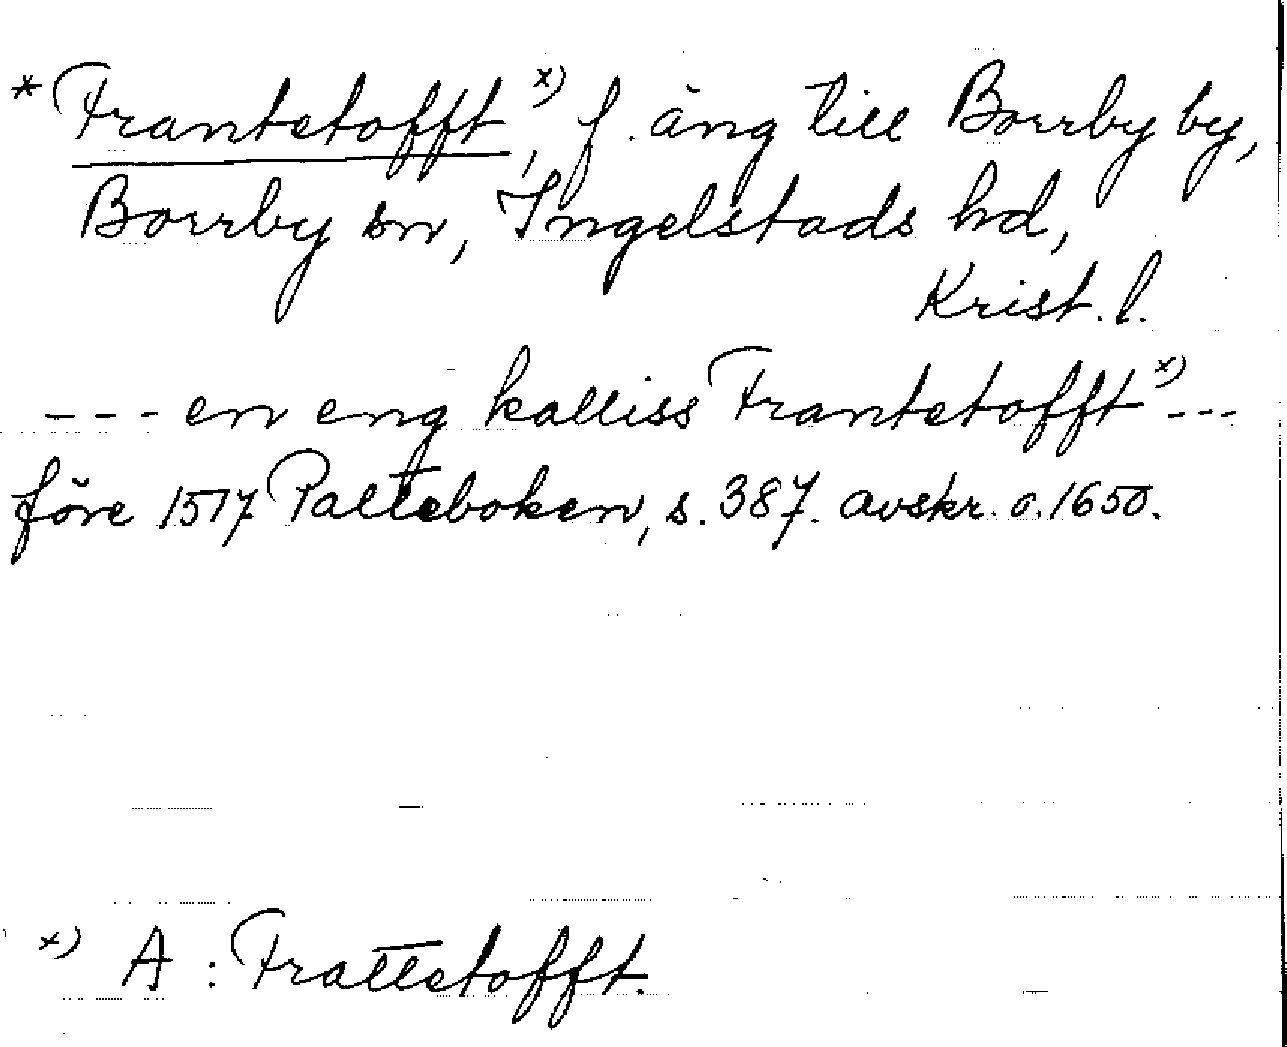 *Frantetofft,ˣ⁾ f. äng till Borrby by,
Borrby sn, Ingelstads hd,
Krist. l.
--- en eng kalliss Frantetofftˣ⁾ ---
före 1517 Palteboken, s. 387. avskr. o. 1650.
ˣ⁾ A : Frattetofft.